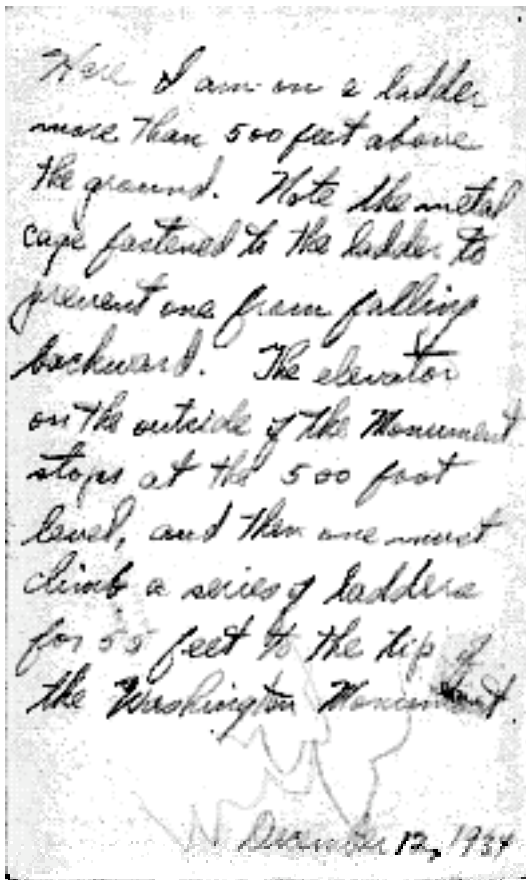 Here I am on a ladder
more than 500 feet above
the ground. Note the metal
cage fastened to the ladder to
prevent one from falling
backward. The elevator
on the outside of the Monument
stops at the 500 foot
level, and then one must
climb a series of ladders
for 55 feet to the tip of
the Washington Monument
December 12, 1934